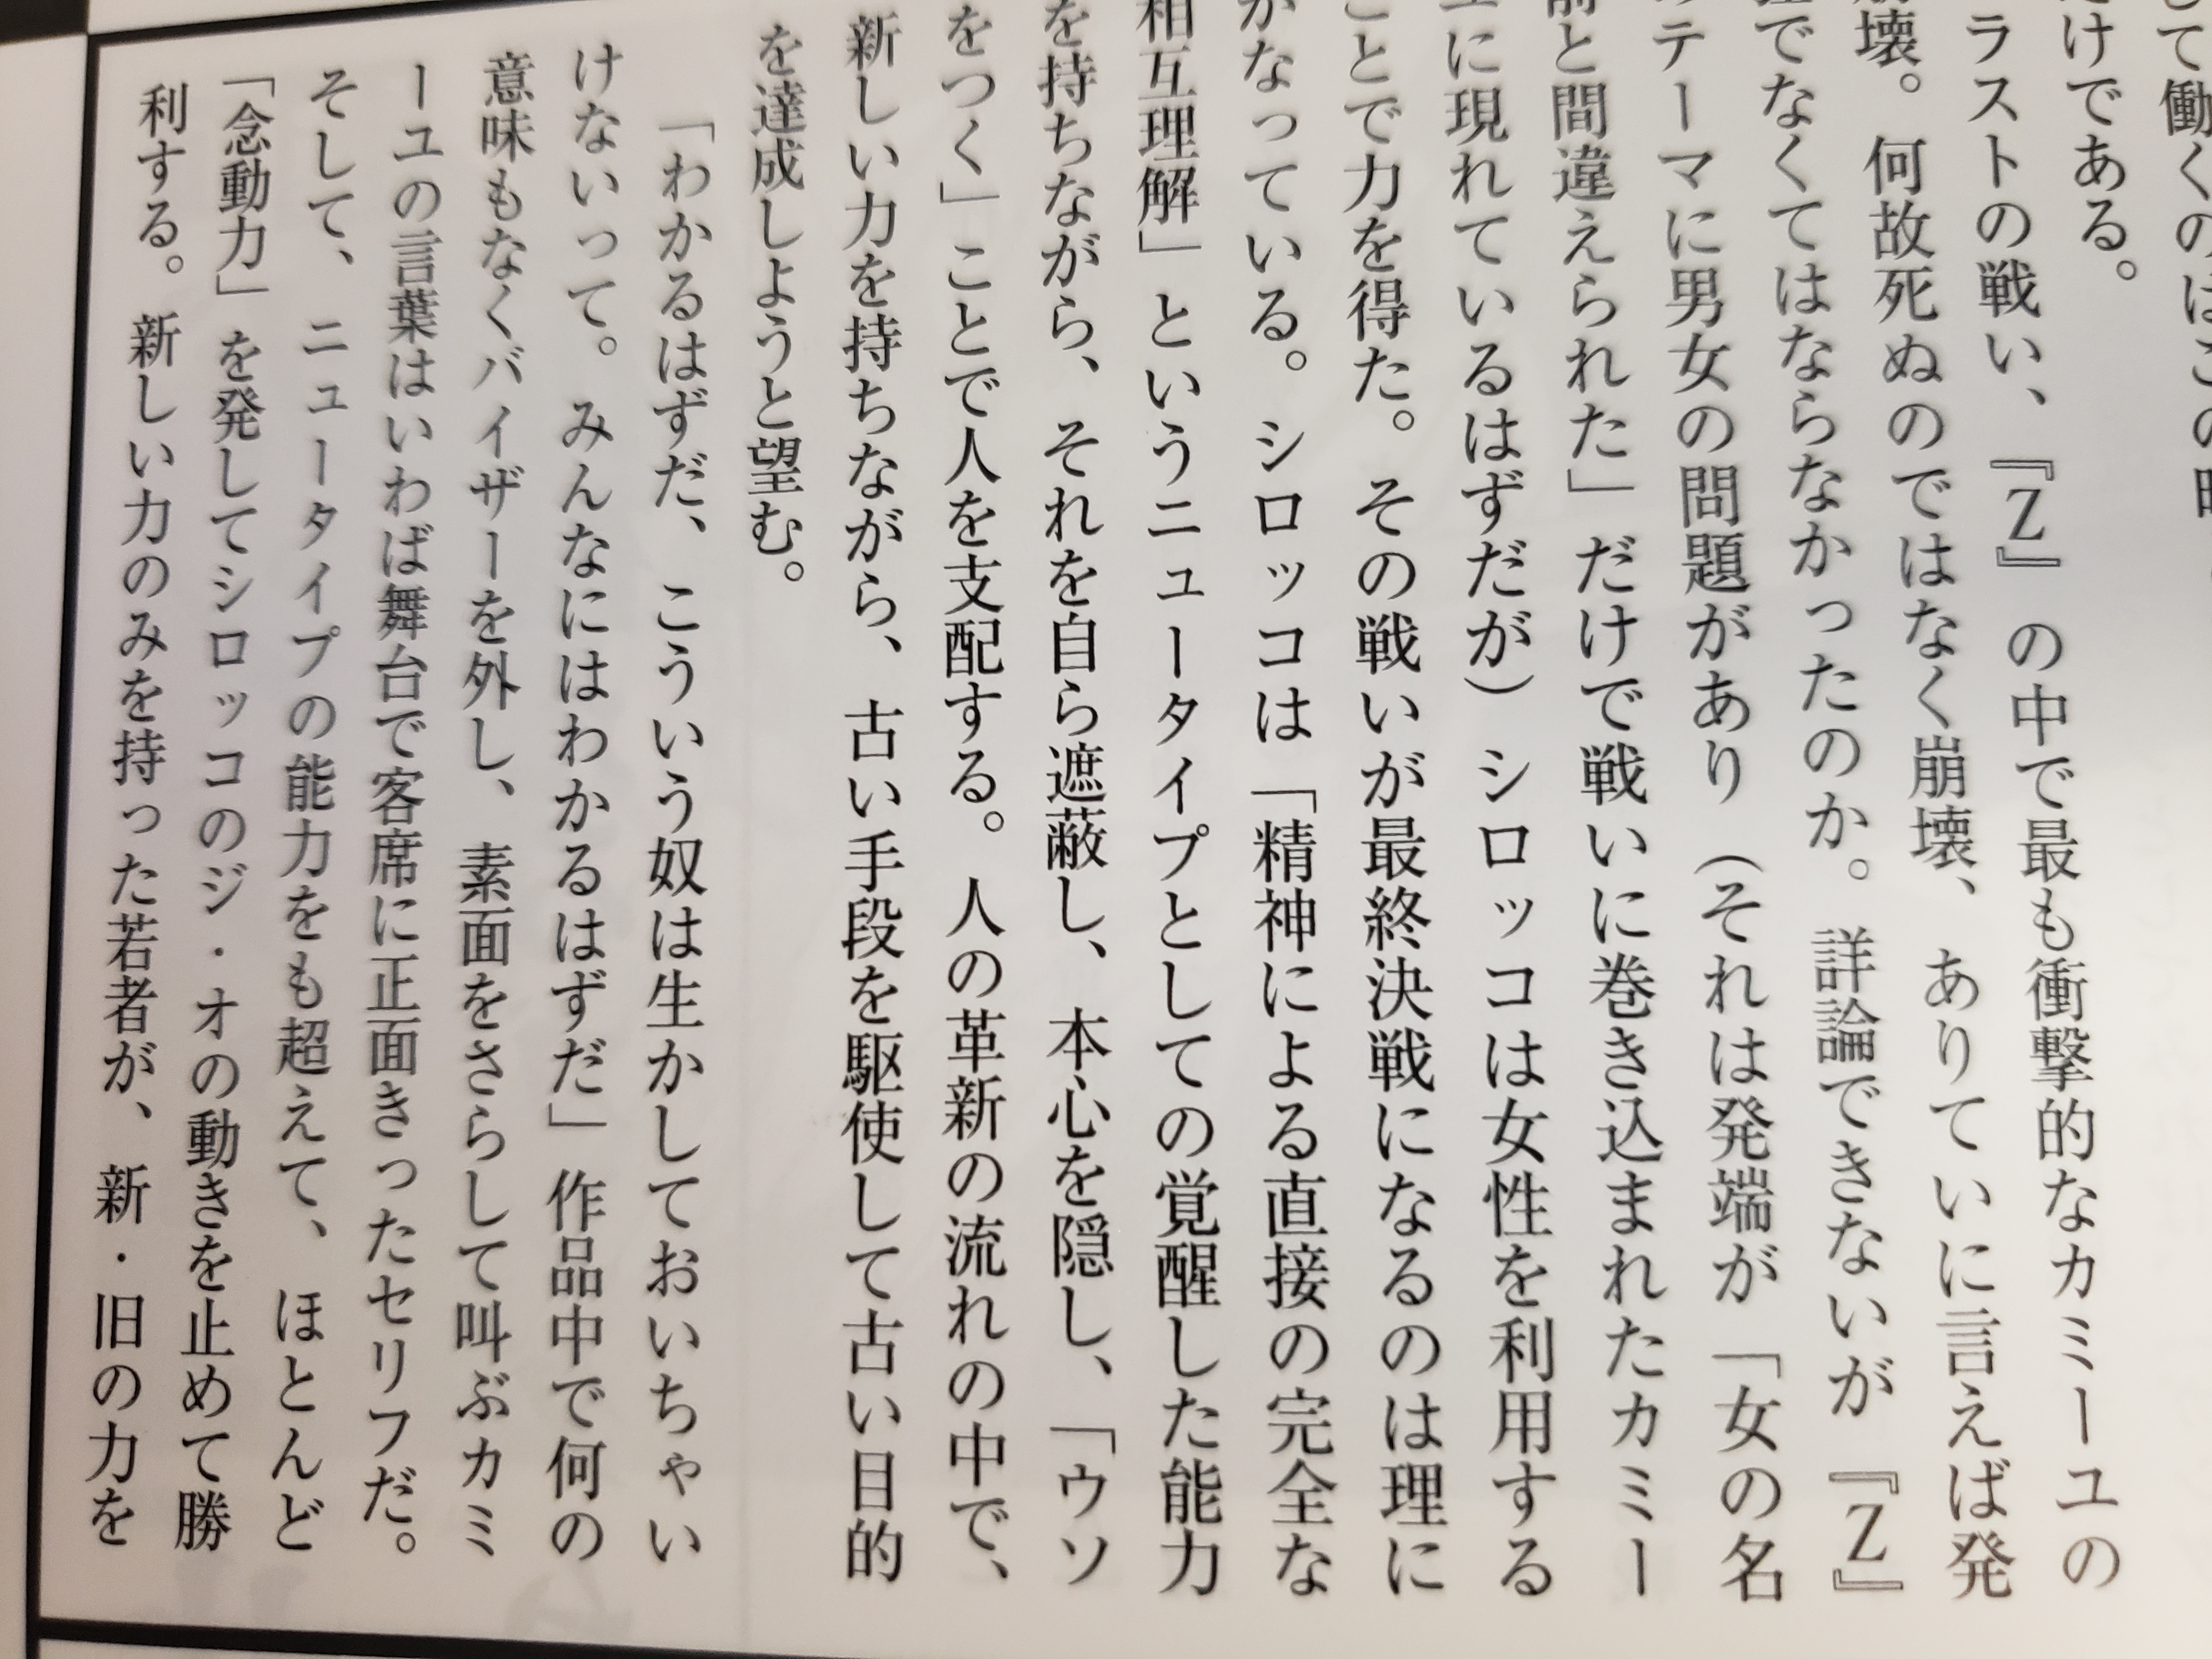 して働くのはこの
だけである。
ラストの戦い、『Z』の中で最も衝撃的なカミーユの
崩壊。何故死ぬのではなく崩壊、ありていに言えば発
でなくてはならなかったのか。詳論できないが『Z』
のテーマに男女の問題があり（それは発端が「女の名
前と間違えられた」だけで戦いに巻き込まれたカミー
ユに現れているはずだが）シロッコは女性を利用する
ことで力を得た。その戦いが最終決戦になるのは理に
かなっている。シロッコは「精神による直接の完全な
相互理解」というニュータイプとしての覚醒した能力
を持ちながら、それを自ら遮蔽し、本心を隠し、「ウソ
をつく」ことで人を支配する。人の革新の流れの中で、
新しい力を持ちながら、古い手段を駆使して古い目的
を達成しようと望む。
「わかるはずだ、こういう奴は生かしておいちゃい
けないって。みんなにはわかるはずだ」作品中で何の
意味もなくバイザーを外し、素面をさらして叫ぶカミ
ーユの言葉はいわば舞台で客席に正面きったセリフだ。
そして、ニュータイプの能力をも超えて、ほとんど
「念動力」を発してシロッコのジ・オの動きを止めて勝
利する。新しい力のみを持った若者が、新・旧の力を